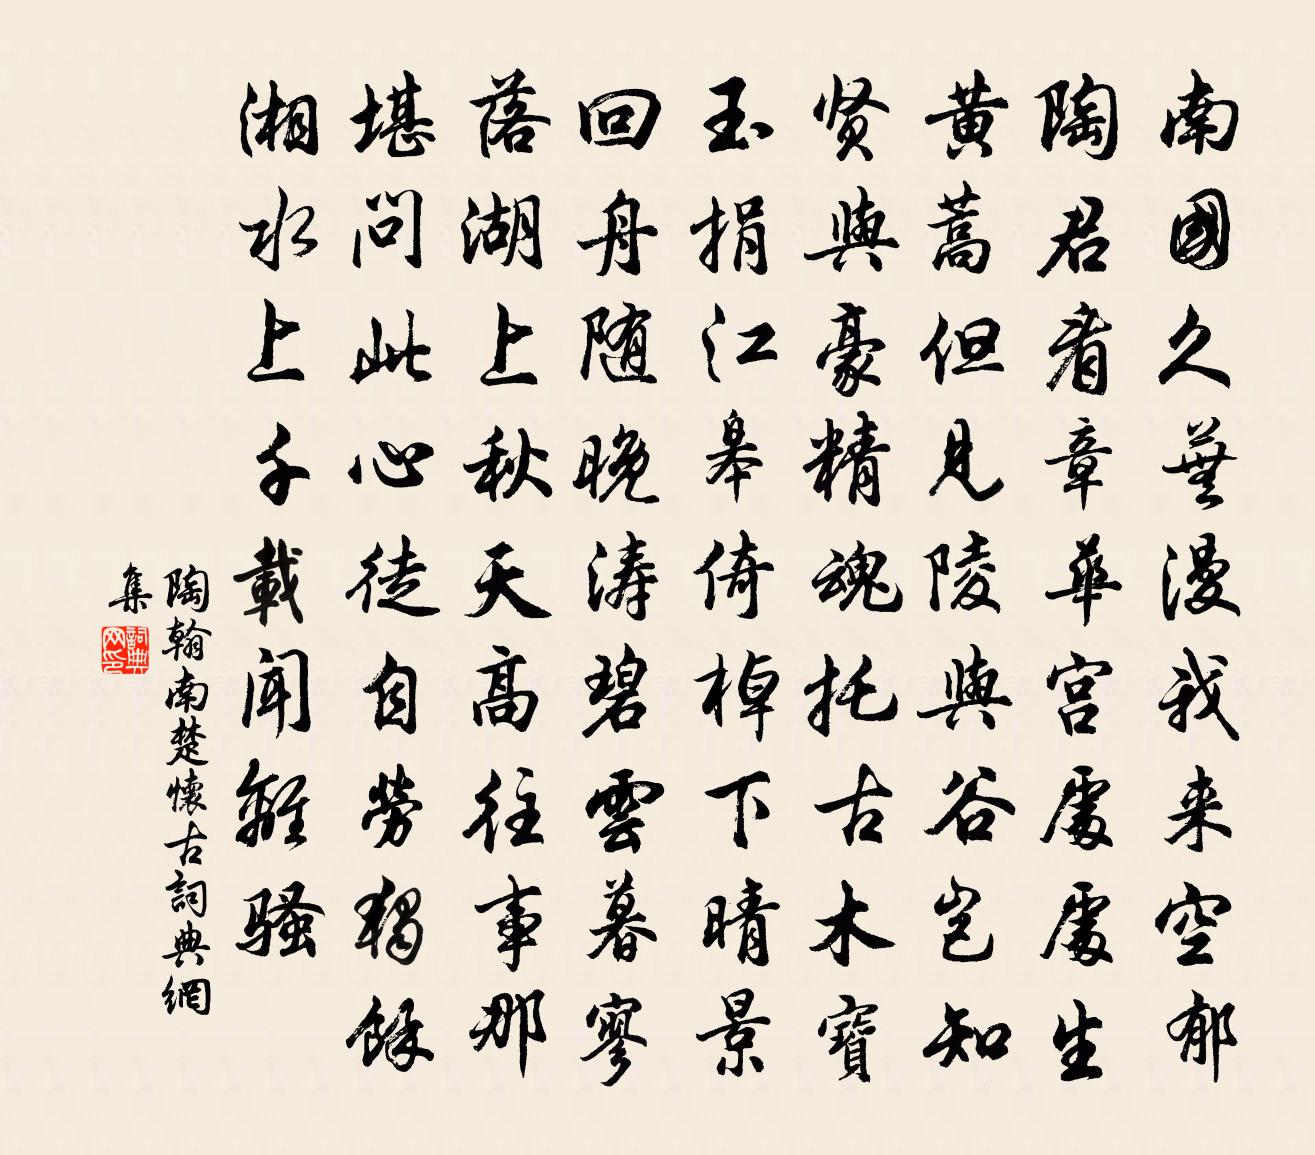 南國久蕪漫我来空郁
陶君看章華宫處處生
黄蒿但見陵與谷豈知
贤與豪精魂托古木寶
玉捐江皋倚棹下晴景
回舟随晚濤碧雲暮寥
落湖上秋天高往事那
堪問此心徒自勞獨餘
湘水上千載聞離騷
陶翰南楚懷古詞典網
集
詞典网印